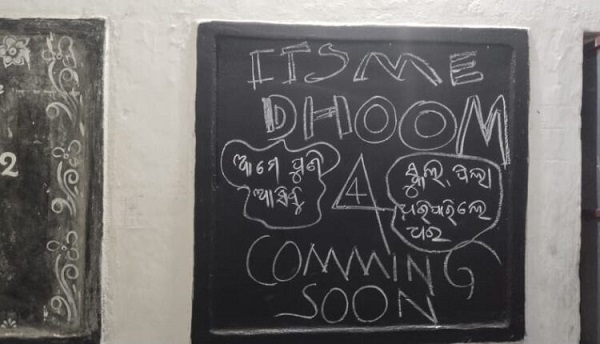 ITS ME
DHOOM
4
ଆମେ ପୁଣି
ଆସିବୁ
ସ୍କୁଲ୍, ପିଲା
ଧରିପାରିଲେ
ଧର
COMMING
SOON
2